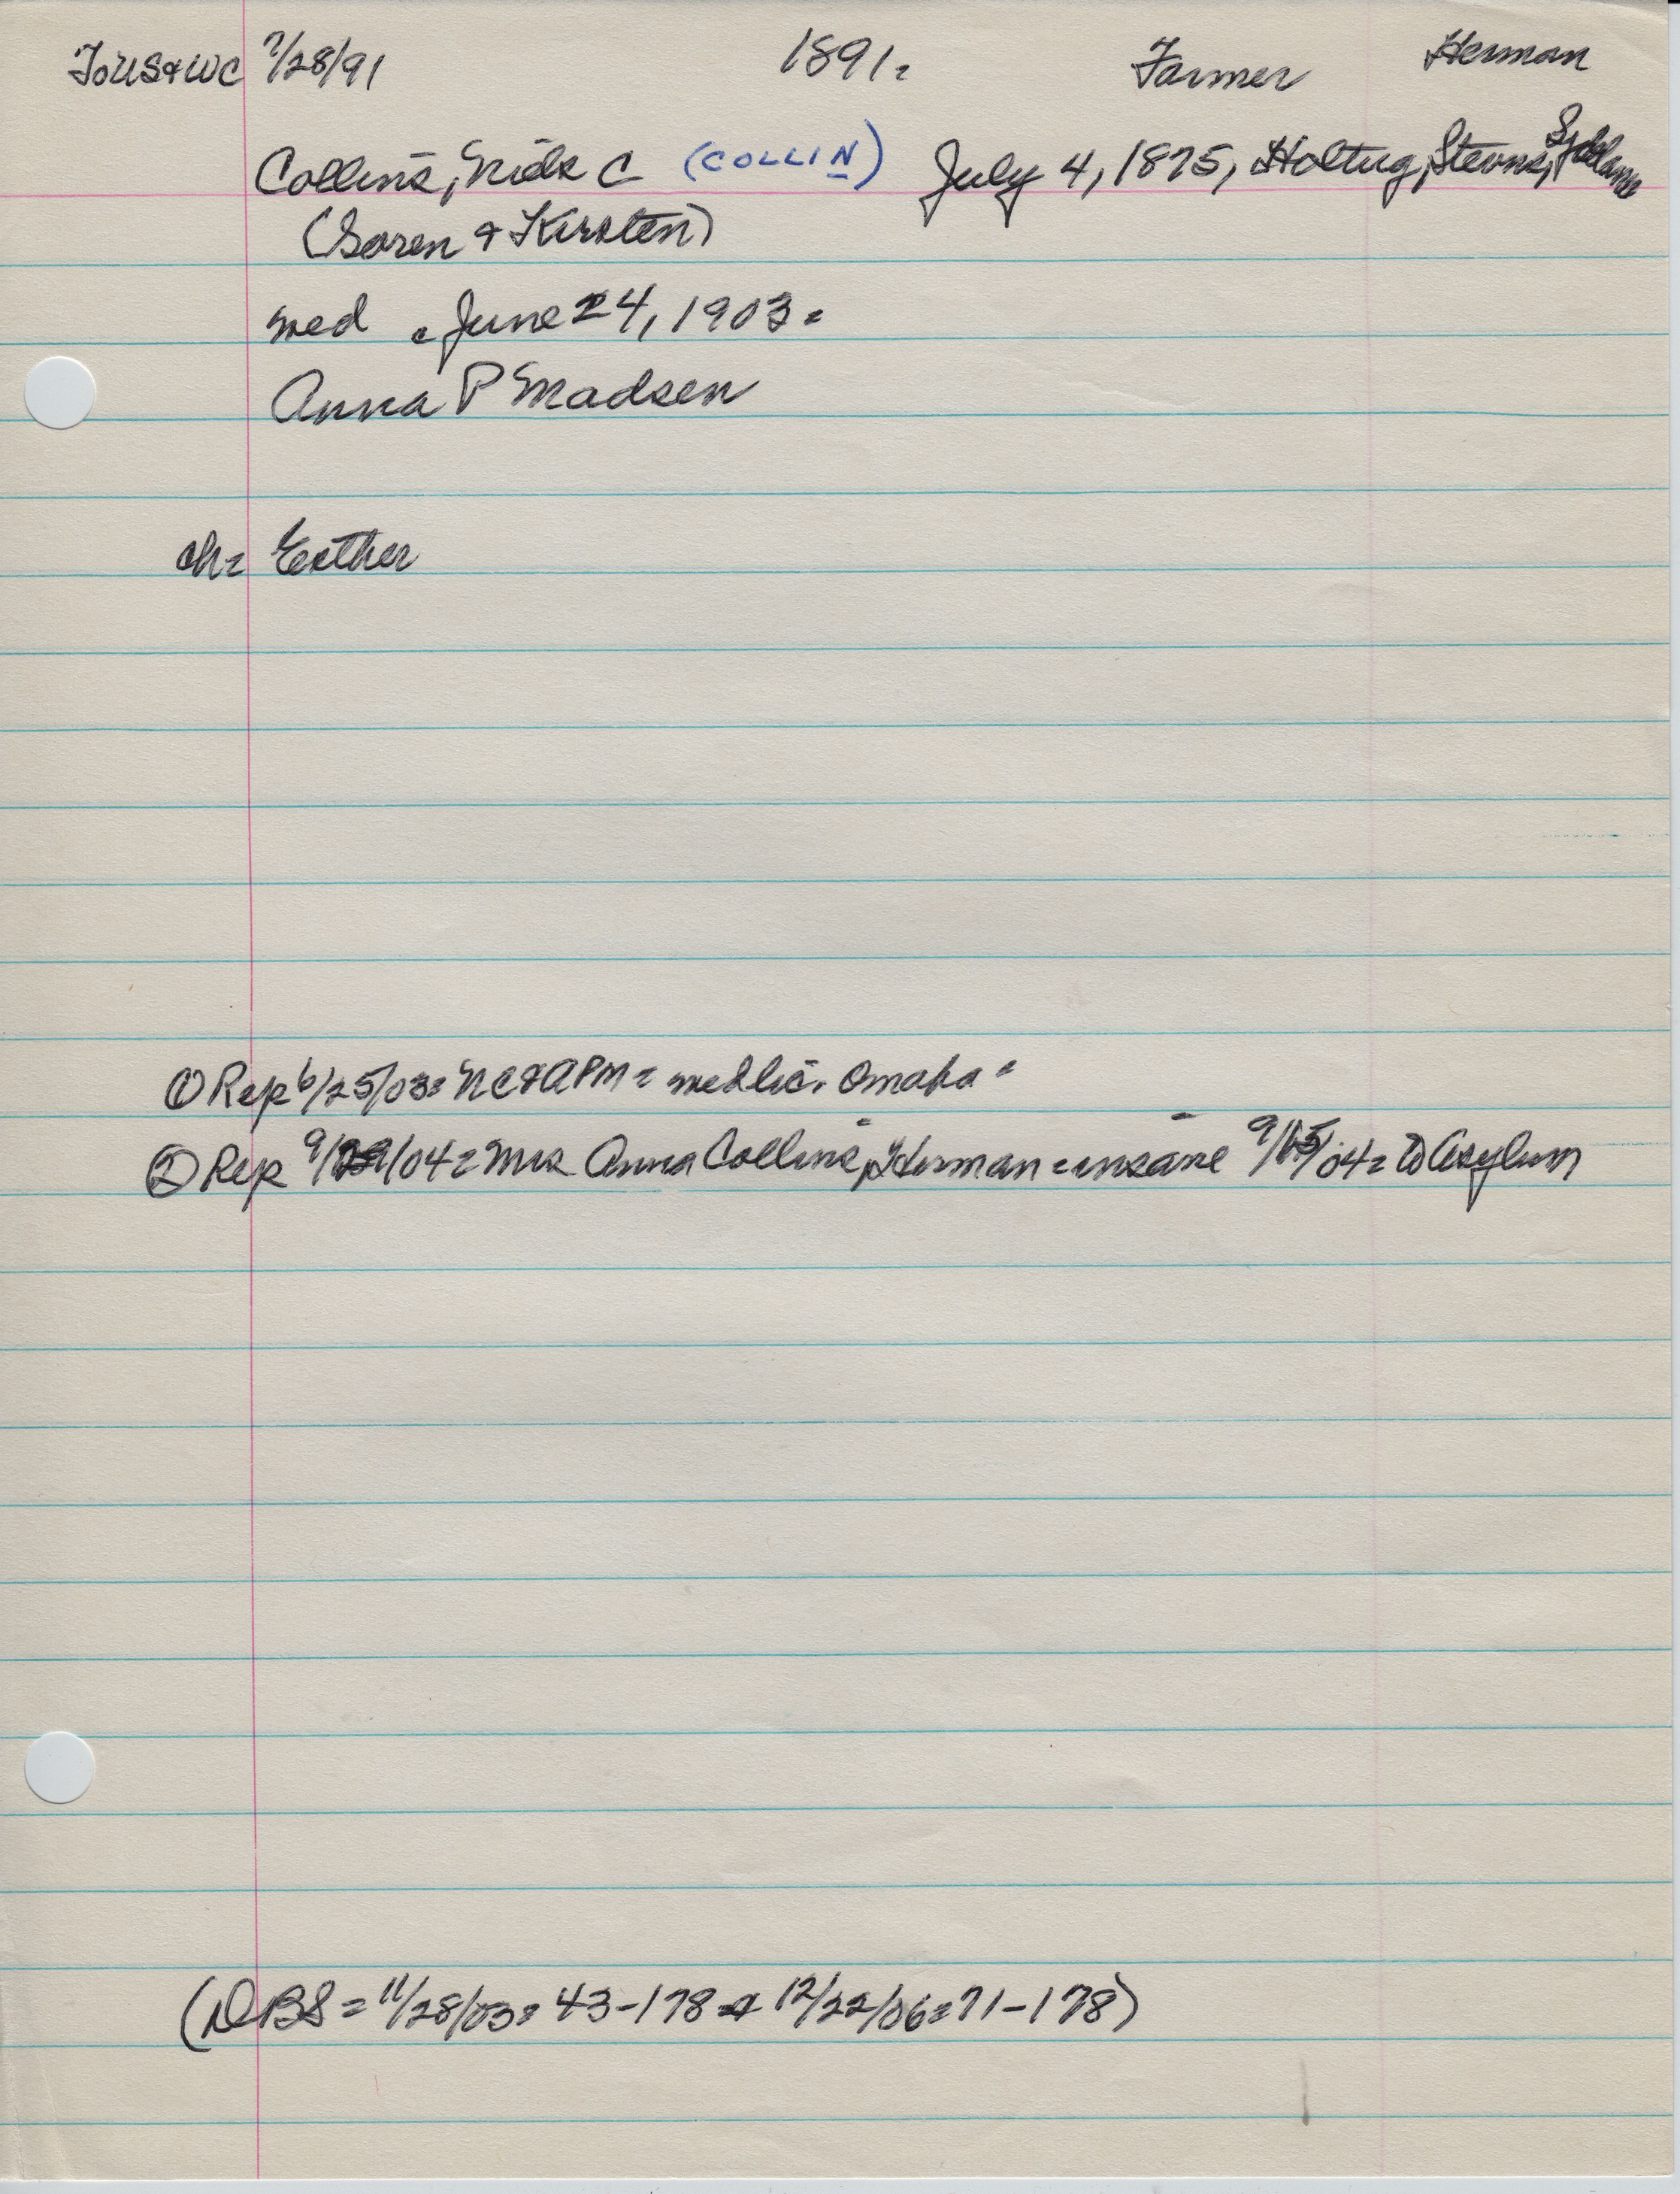 To US & WC 7/28/91 1891. Farmer Herman
Collins, Niels C (COLLIN) July 4, 1875, Holtug, Stevns, Sjælland
(Soren & Kirsten)
med June 24, 1903.
Anna P Madsen
ch= Esther
① Rep 6/25/03= NC & APM= med lic. Omaha
② Rep 9/29/04= Mrs Anna Collins, Herman= insane 9/15/04= To Asylum
(DBS= 11/28/03= 43-178 & 12/22/06= 71-178)